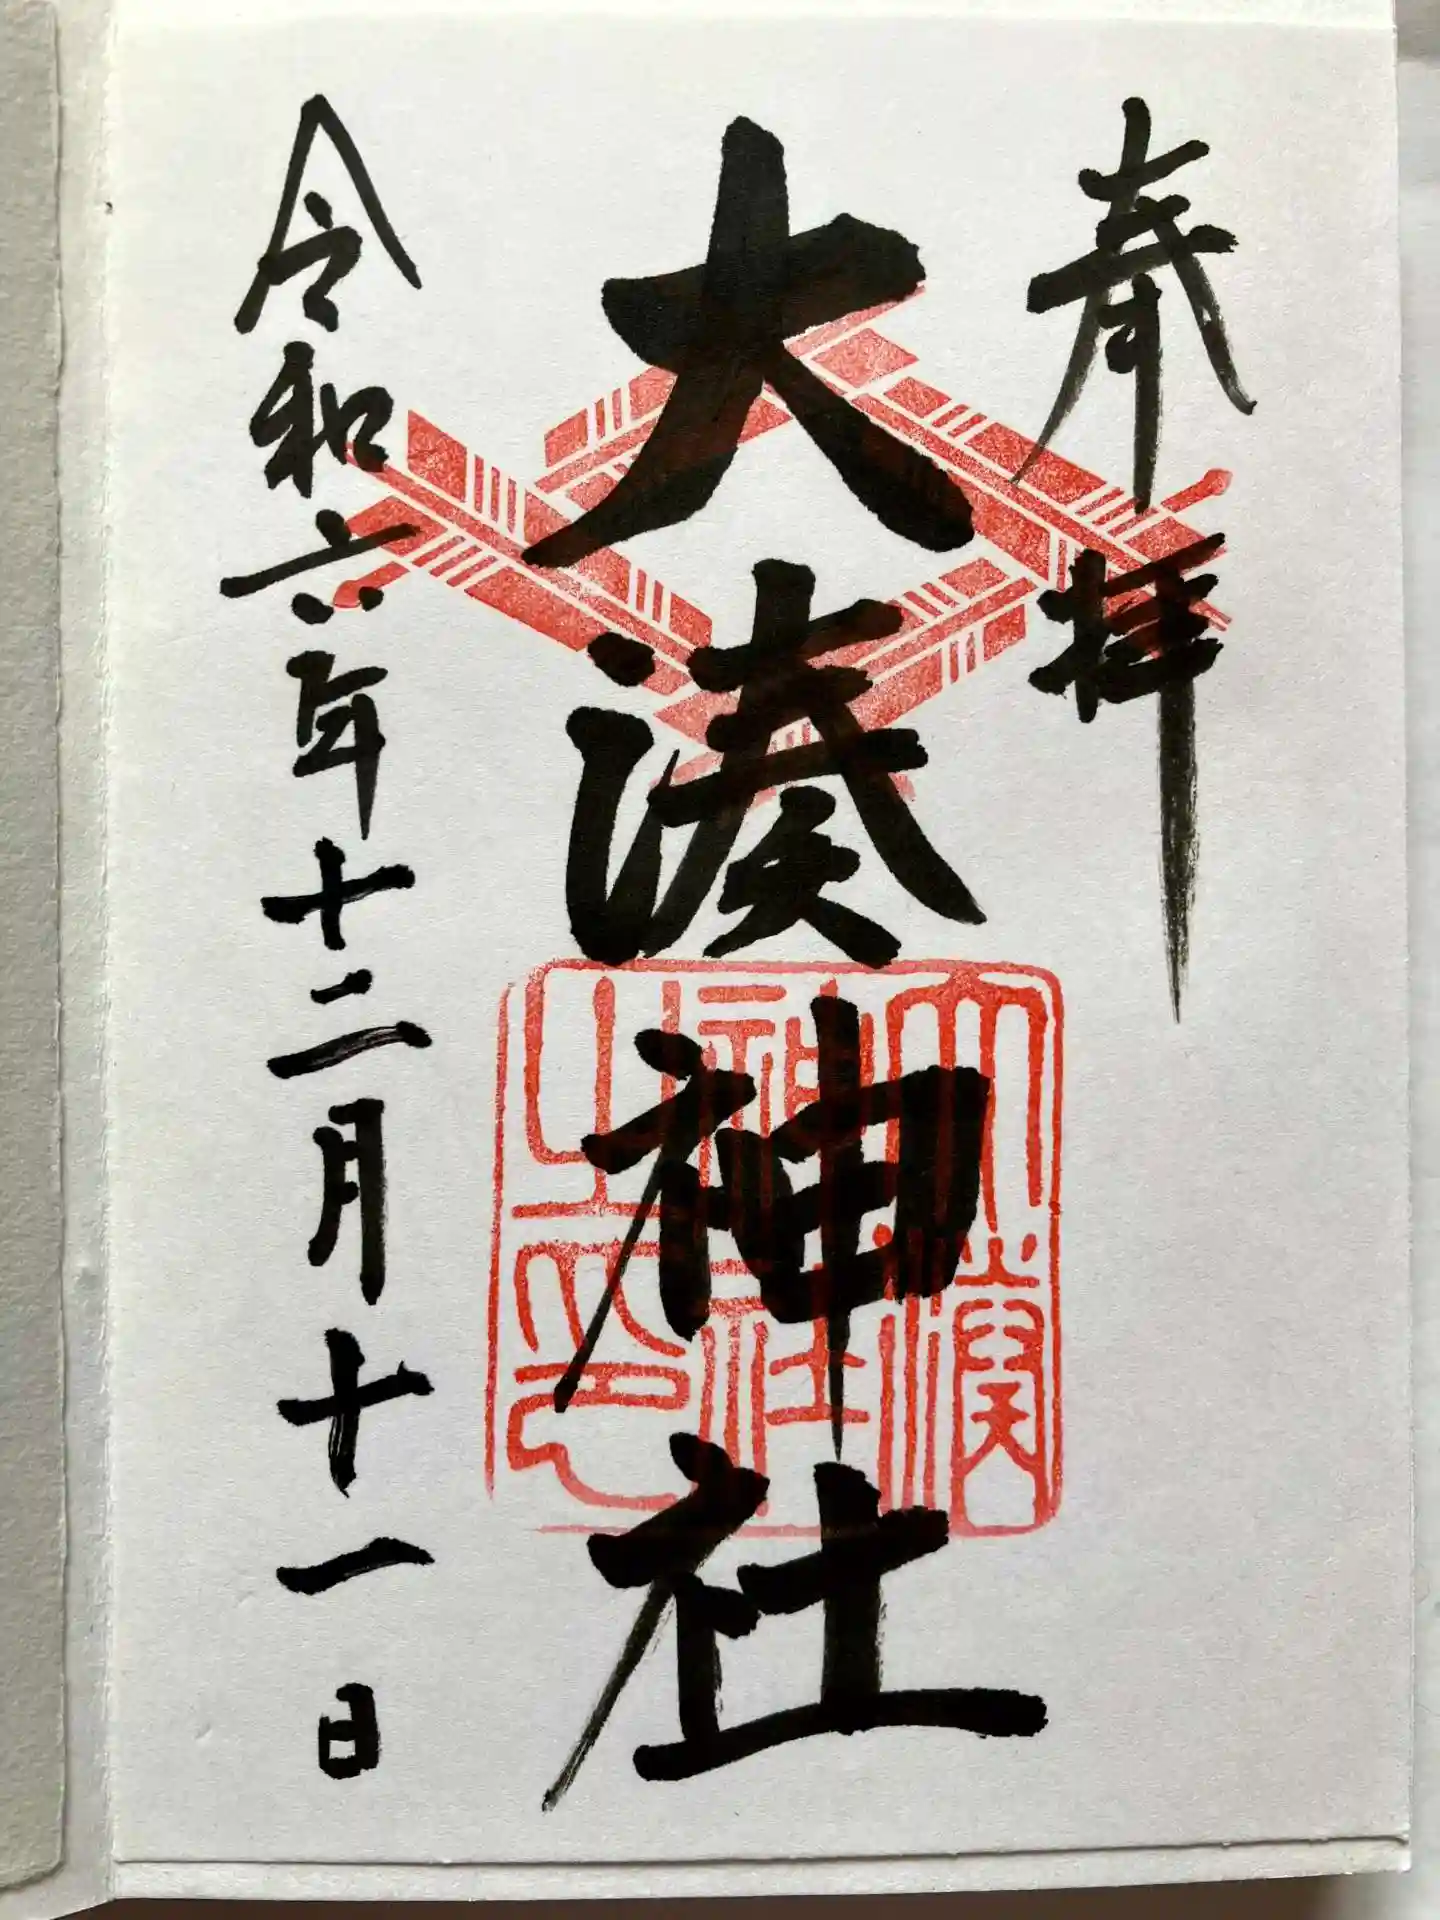 奉拝
大湊神社
大湊神社之印
令和六年十二月十一日